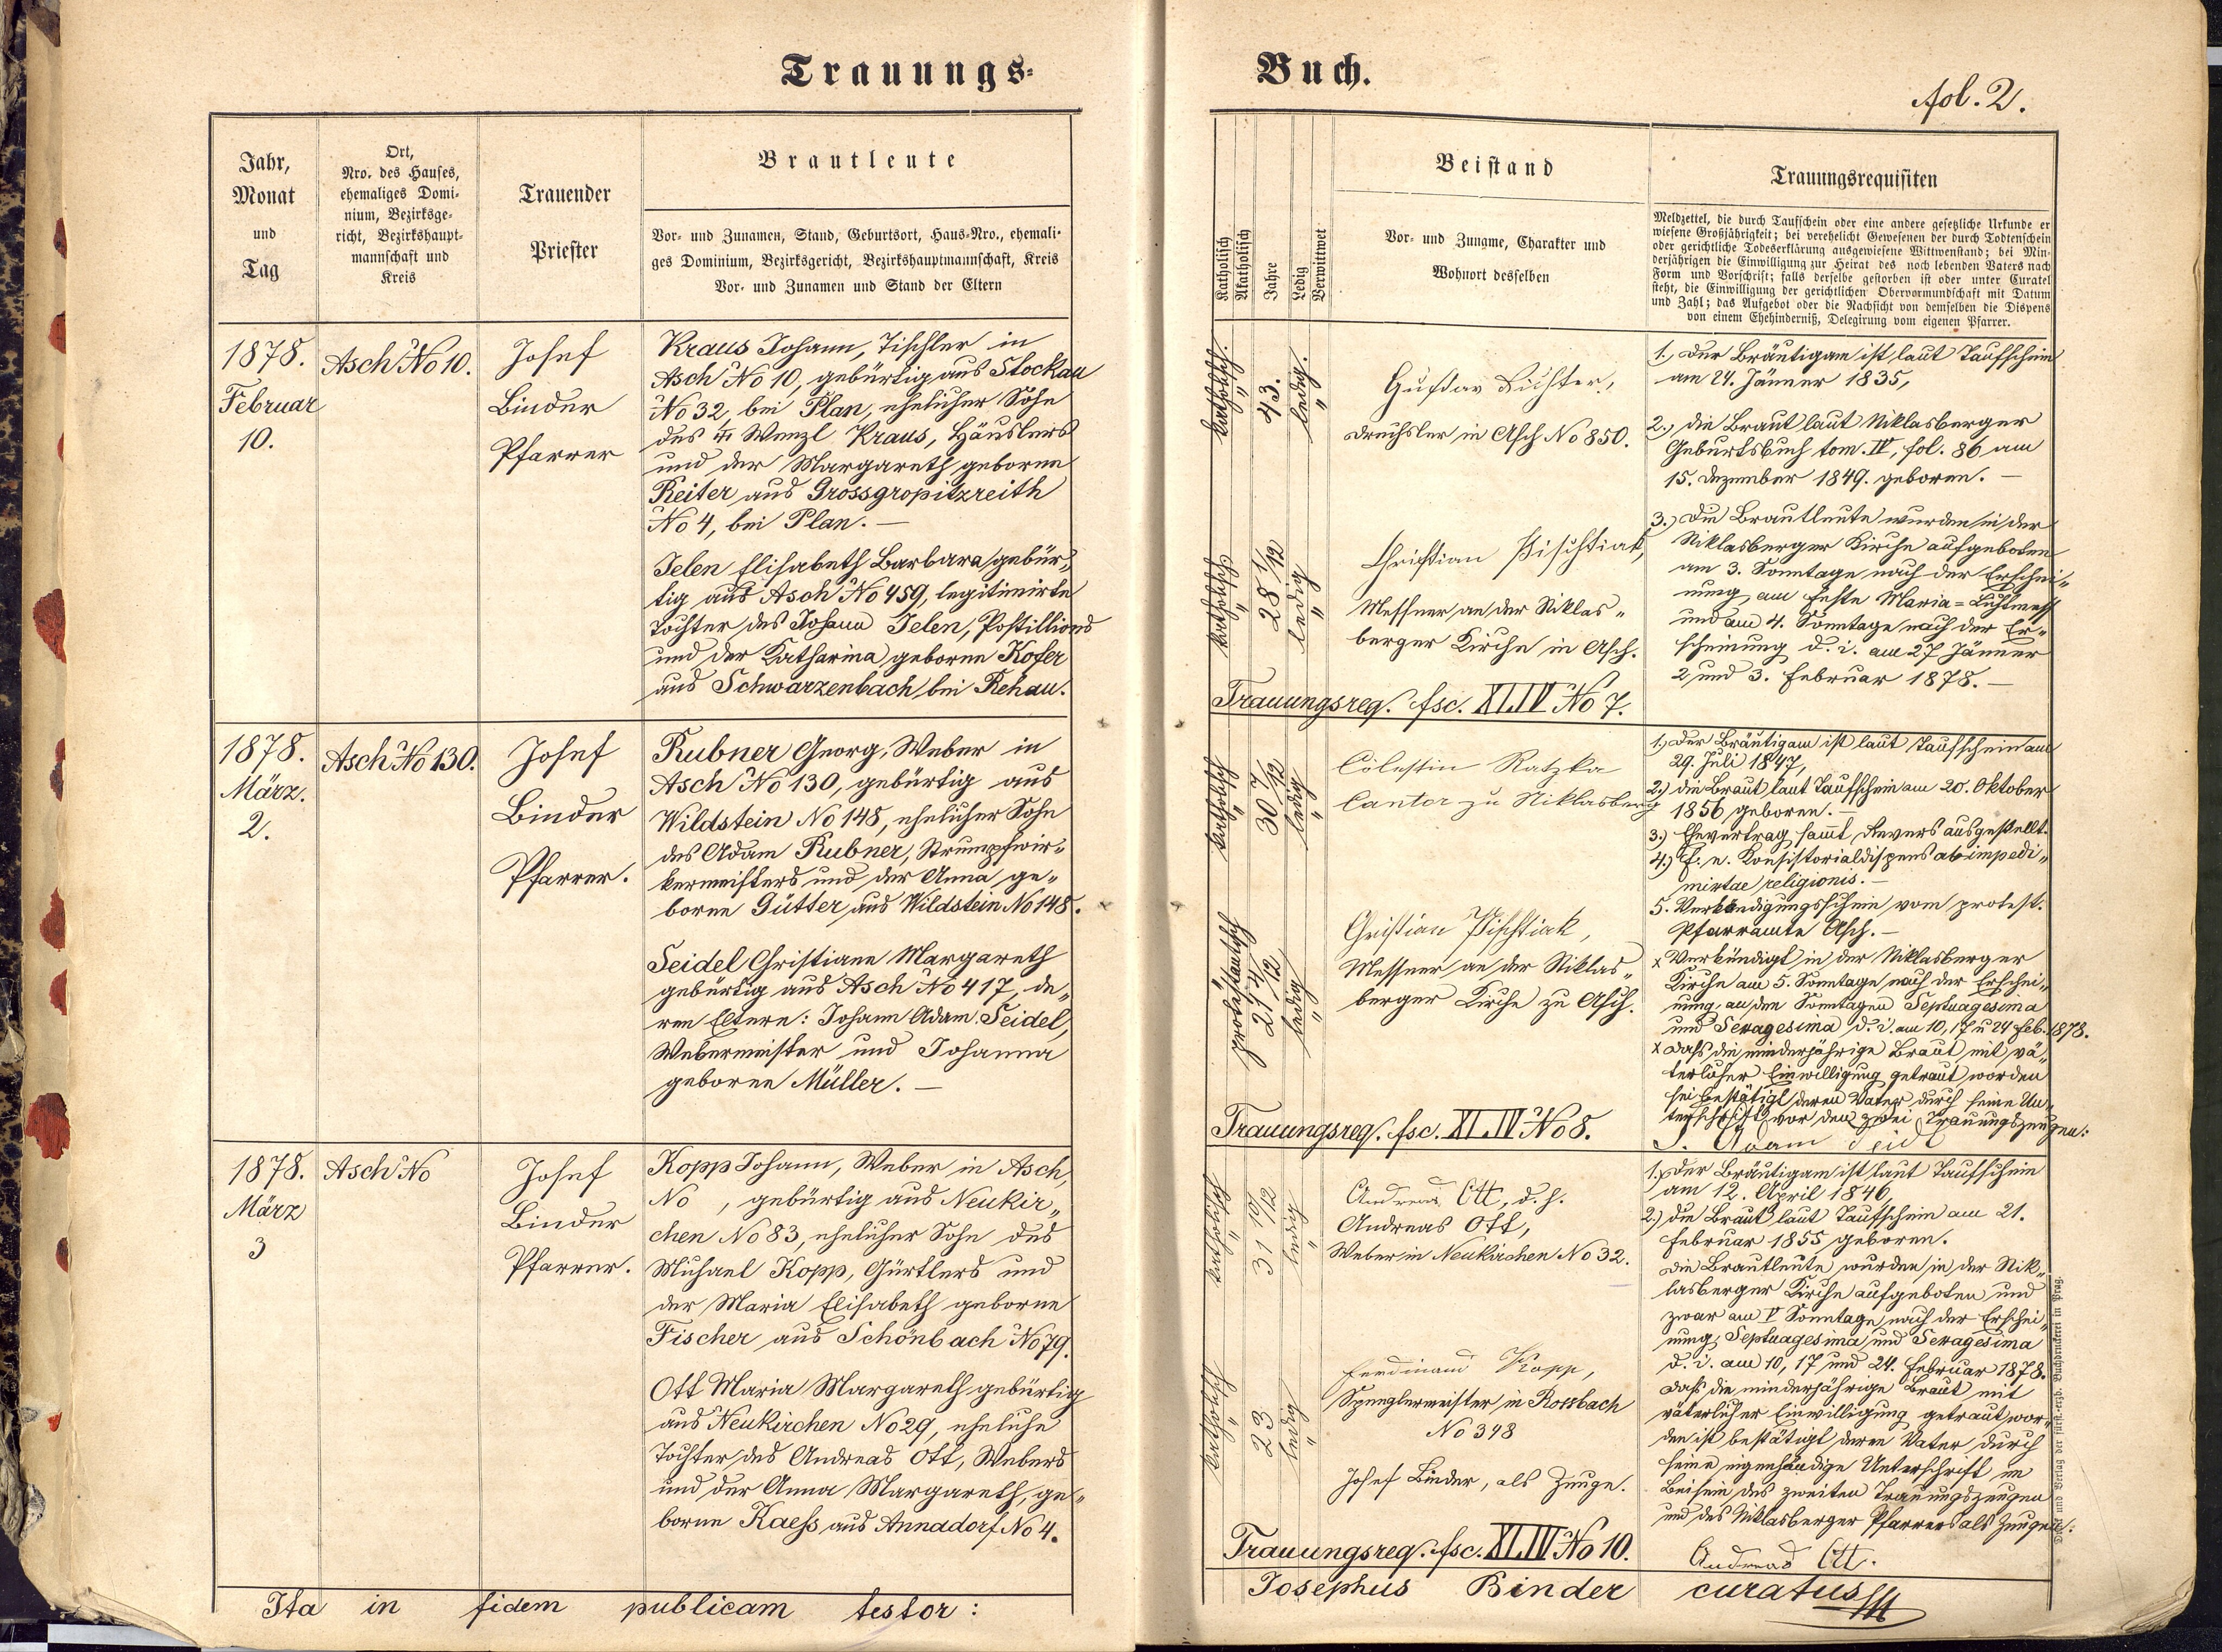 Trauungs-
Buch.
fol. 2.
Jahr,
Monat
und
Tag
Ort,
Nro. des Hauses,
ehemaliges Domi-
nium, Bezirksge-
richt, Bezirkshaupt-
mannschaft und
Kreis
Trauender
Priester
Brautleute
Vor- und Zunamen, Stand, Geburtsort, Haus-Nro., ehemali-
ges Dominium, Bezirksgericht, Bezirkshauptmannschaft, Kreis
Vor- und Zunamen und Stand der Eltern
Katholisch
Akatholisch
Jahre
Ledig
Verwittwet
Beistand
Vor- und Zuname, Charakter und
Wohnort desselben
Trauungsrequisiten
Meldzettel, die durch Taufschein oder eine andere gesetzliche Urkunde er
wiesene Großjährigkeit; bei verehelicht Gewesenen der durch Todtenschein
oder gerichtliche Todeserklärung ausgewiesene Wittwenstand; bei Min-
derjährigen die Einwilligung zur Heirat des noch lebenden Vaters nach
Form und Vorschrift; falls derselbe gestorben ist oder unter Curatel
steht, die Einwilligung der gerichtlichen Obervormundschaft mit Datum
und Zahl; das Aufgebot oder die Nachsicht von demselben die Dispens
von einem Ehehinderniß, Delegirung vom eigenen Pfarrer.
1878.
Februar
10.
Asch No 10.
Josef
Binder
Pfarrer
Kraus Johann, Tischler in
Asch No 10, gebürtig aus Stockau
No 32, bei Plan, ehelicher Sohn
des Wenzl Kraus, Häuslers
und der Margareth geborne
Reiter aus Grossgropitzreith
No 4, bei Plan. –
Jelen Elisabeth Barbara gebür„
tig aus Asch No 459, legitimirte
Tochter des Johann Jelen, Postillions
und der Katharina geborne Kofer
aus Schwarzenbach bei Rehau.
katholisch.
"
43.
ledig.
"
katholisch
"
28 1/12
ledig
"
Gustav Richter,
Drechsler in Asch No 850.
Christian Pischtiak,
Messner an der Niklas„
berger Kirche in Asch.
Trauungsreq. fsc. XLIV No 7.
1., Der Bräutigam ist laut Taufschein
am 24. Jänner 1835,
2., die Braut laut Niklasberger
Geburtsbuch tom. IV, fol. 86 am
15. Dezember 1849. geboren. –
3.) Die Brautleute wurden in der
Niklasberger Kirche aufgeboten
am 3. Sonntage nach der Erschei„
nung, am Feste Maria=Lichtmess
und am 4. Sonntage nach der Er„
scheinung d. i. am 27 Jänner
2 und 3. Februar 1878. –
1878.
März.
2.
Asch No 130.
Josef
Binder
Pfarrer.
Rubner Georg, Weber in
Asch No 130, gebürtig aus
Wildstein No 148, ehelicher Sohn
des Adam Rubner, Strumpfwir„
kermeisters und der Anna ge„
borne Gütter aus Wildstein No 148.
Seidel Christiane Margareth
gebürtig aus Asch No 417, de„
ren Eltern: Johann Adam Seidel,
Webermeister und Johanna
geborne Müller. –
katholisch
"
30 7/12
ledig
"
protestantisch
"
21 4/12
ledig
"
Cölestin Ratzka
Cantor zu Niklasberg
Christian Pischtiak,
Messner an der Niklas„
berger Kirche zu Asch.
Trauungsreq. fsc. XLIV No 8.
1.) Der Bräutigam ist laut Taufschein am
29. Juli 1847,
2.) die Braut laut Taufschein am 20. Oktober
1856 geboren. –
3.) Ehevertrag sammt Revers ausgestellt.
4.) F. e. Konsistorialdispens ab impedi„
mixtae religionis. –
5. Verkündigungsschein vom protest.
Pfarramte Asch. –
x Verkündigt in der Niklasberger
Kirche am 5. Sonntage nach der Erschei„
nung, an den Sonntagen Septuagesima
und Sexagesima d. i. am 10, 17 u 24 Feb. 1878.
x Dass die minderjährige Braut mit vä„
terlicher Einwilligung getraut worden
sei bestätigt deren Vater durch seine Un„
terschrift vor den zwei Trauungszeugen:
J. Adam Seidl
1878.
März
3
Asch No
Josef
Binder
Pfarrer.
Kopp Johann, Weber in Asch,
No , gebürtig aus Neukir„
chen No 83, ehelicher Sohn des
Michael Kopp, Gürtlers und
der Maria Elisabeth geborne
Fischer aus Schönbach No 79.
Ott Maria Margareth gebürtig
aus Neukirchen No 29, eheliche
Tochter des Andreas Ott, Webers
und der Anna Margareth, ge„
borne Kaess aus Annadorf No 4.
katholisch
"
31 10/12
ledig
"
katholisch
"
23
ledig
"
Andreas Ott, d. h.
Andreas Ott,
Weber in Neukirchen No 32.
Ferdinand Kopp,
Spenglermeister in Rossbach
No 348
Josef Binder, als Zeuge.
Trauungsreq. fsc. XLIV No 10.
1.) Der Bräutigam ist laut Taufschein
am 12. April 1846,
2.) die Braut laut Taufschein am 21.
Februar 1855 geboren.
Die Brautleute wurden in der Nik„
lasberger Kirche aufgeboten und
zwar am V Sonntage nach der Erschei„
nung, Septuagesima und Sexagesima
d. i. am 10, 17 und 24. Februar 1878.
Dass die minderjährige Braut mit
väterlicher Einwilligung getraut wor„
den ist bestätigt deren Vater durch
seine eigenhändige Unterschrift im
Beisein des zweiten Trauungszeugen
und des Niklasberger Pfarrers als Zeugen:
Andreas Ott.
Druck und Verlag der fürst.-erzb. Buchdruckerei in Prag.
Ita in fidem publicam testor:
Josephus Binder curatus